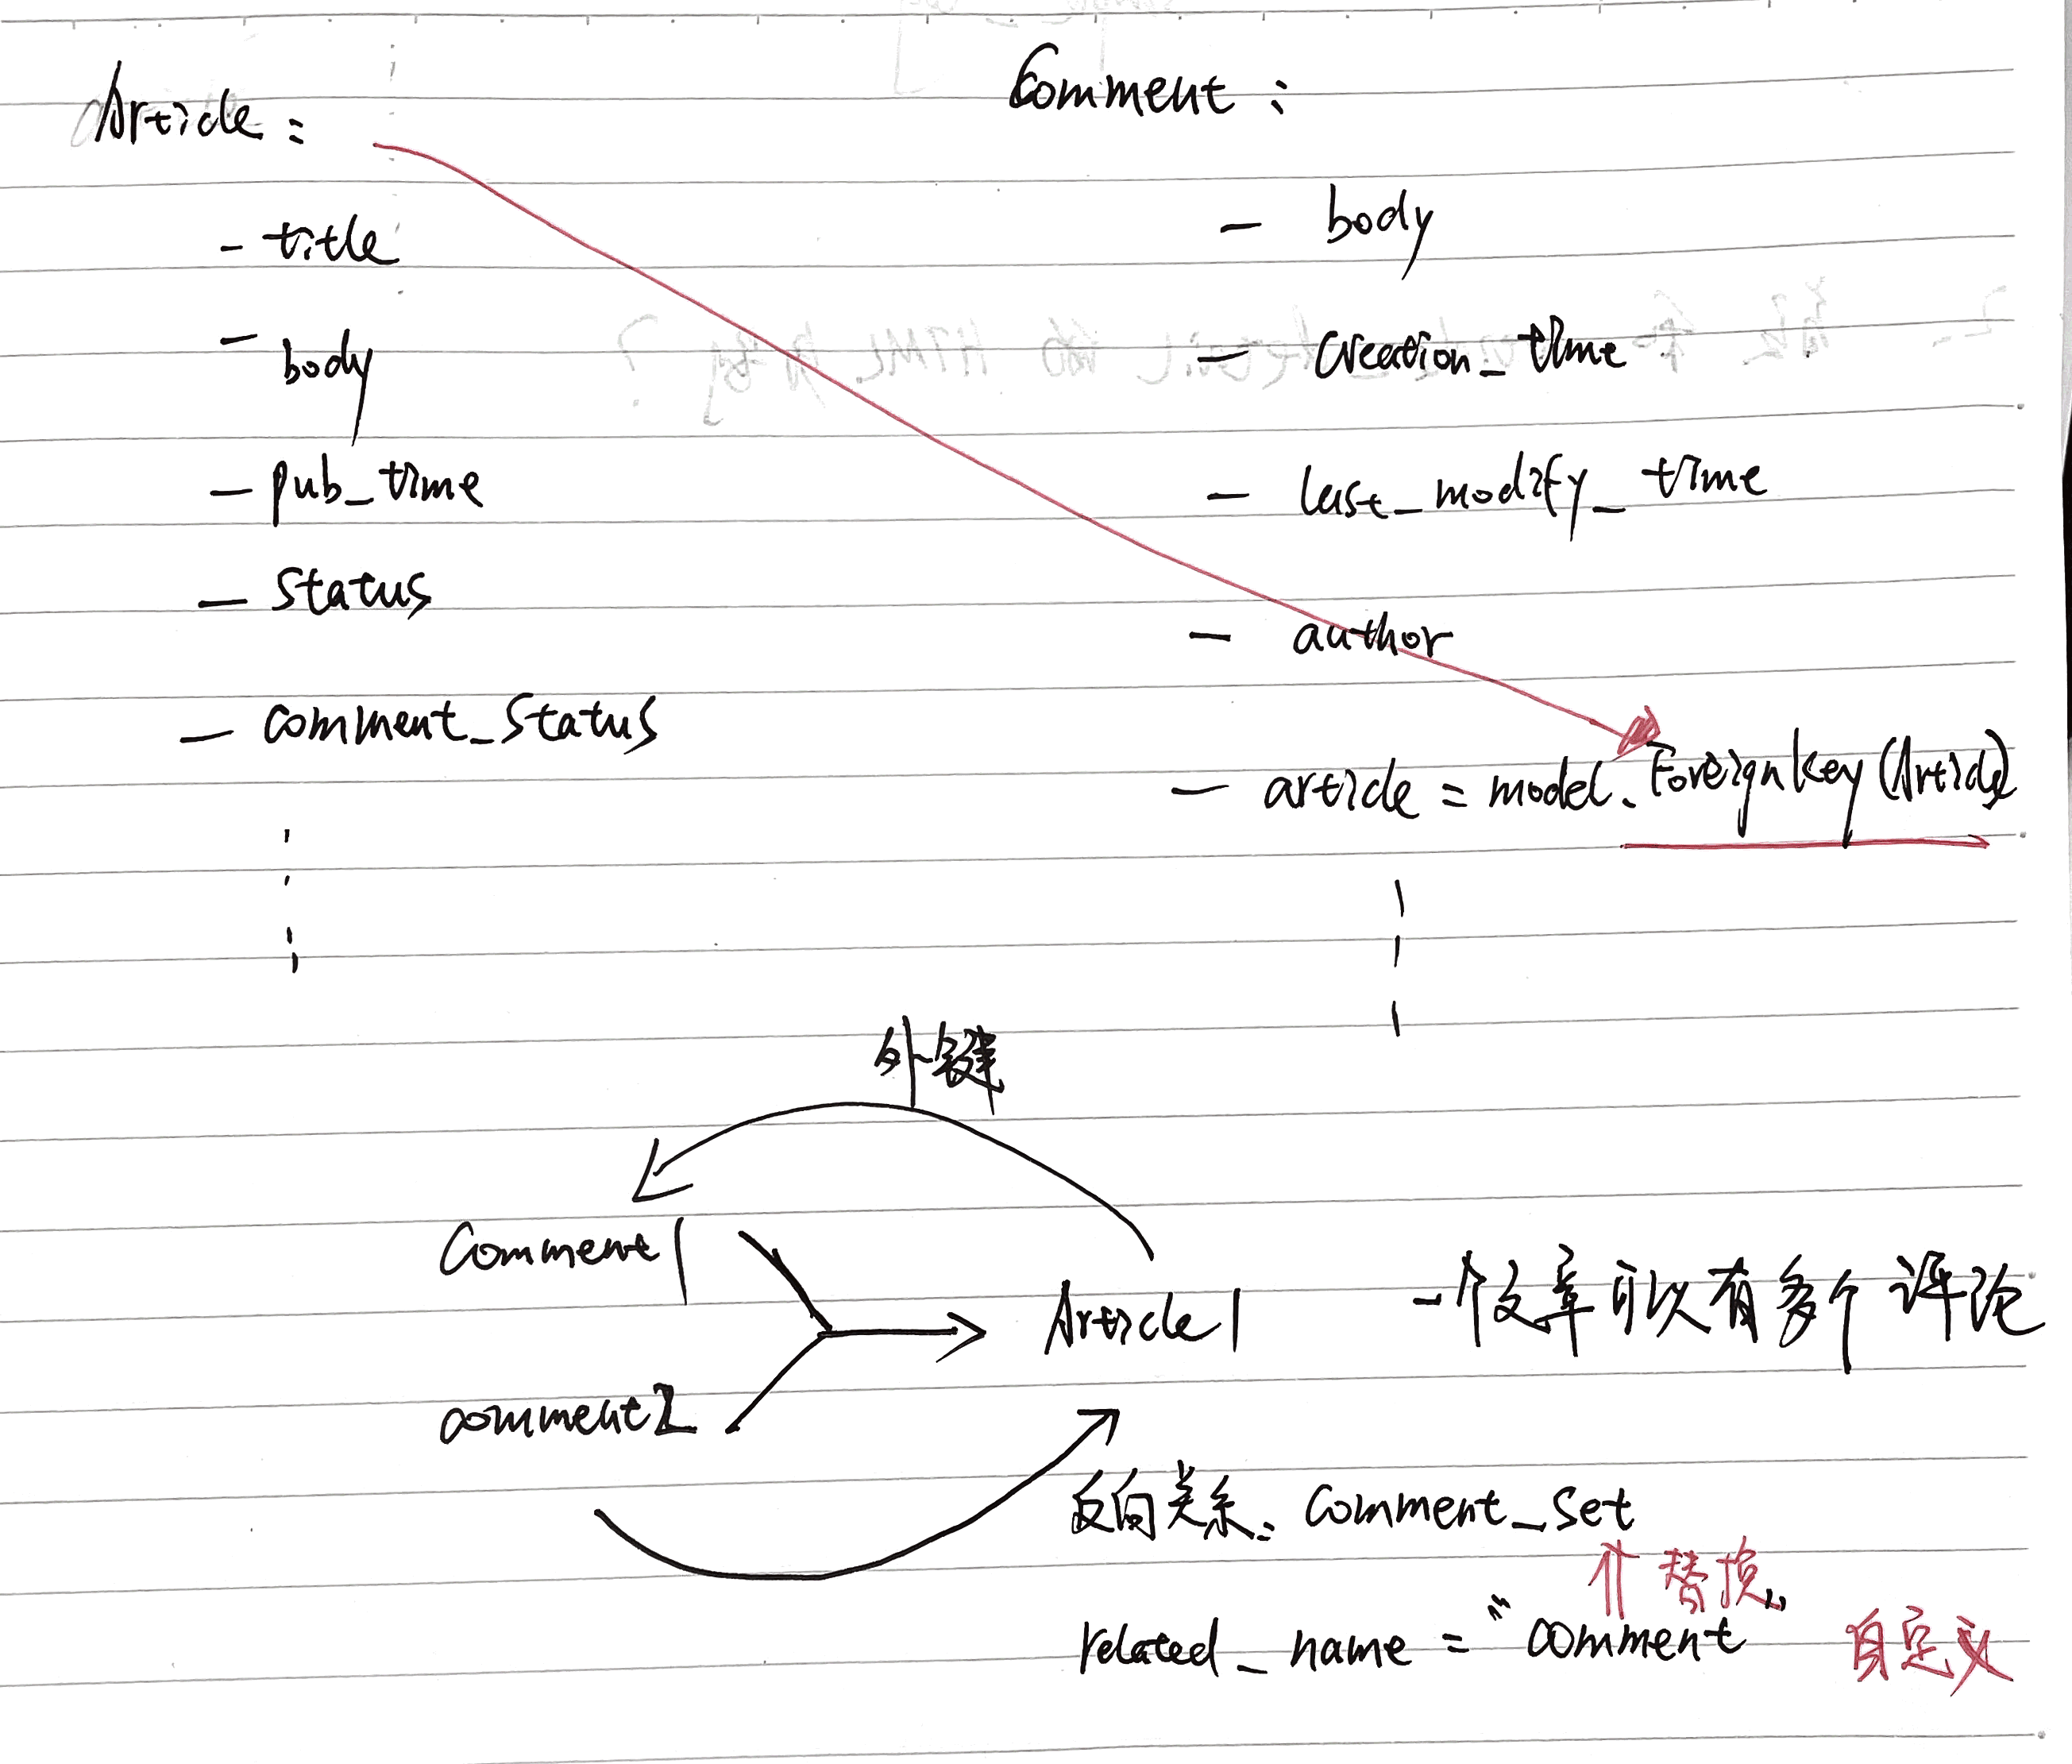 Article :
- title
- body
- pub_time
- status
- comment_status
Comment :
- body
- creation_time
- last_modify_time
- author
- article = model.ForeignKey(Article)
外键
Comment1
comment2
Article1
一个文章可以有多个评论
反向关系: comment_set
替换
related_name = "comment"
自定义